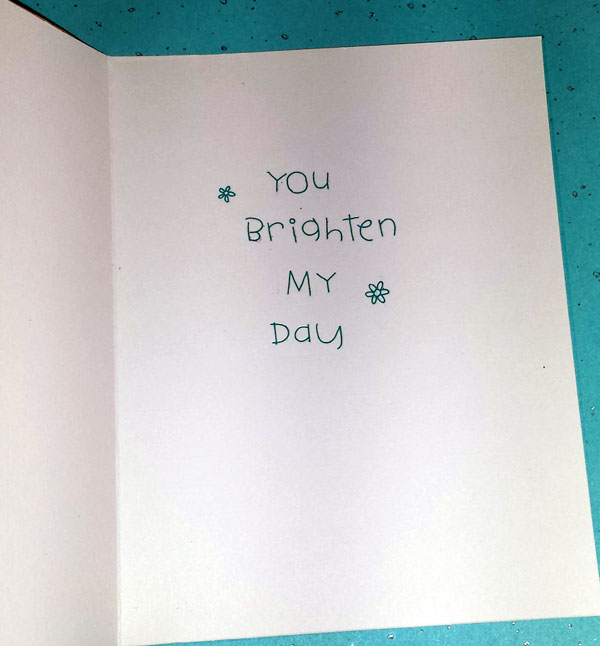 YOU
Brighten
MY
Day